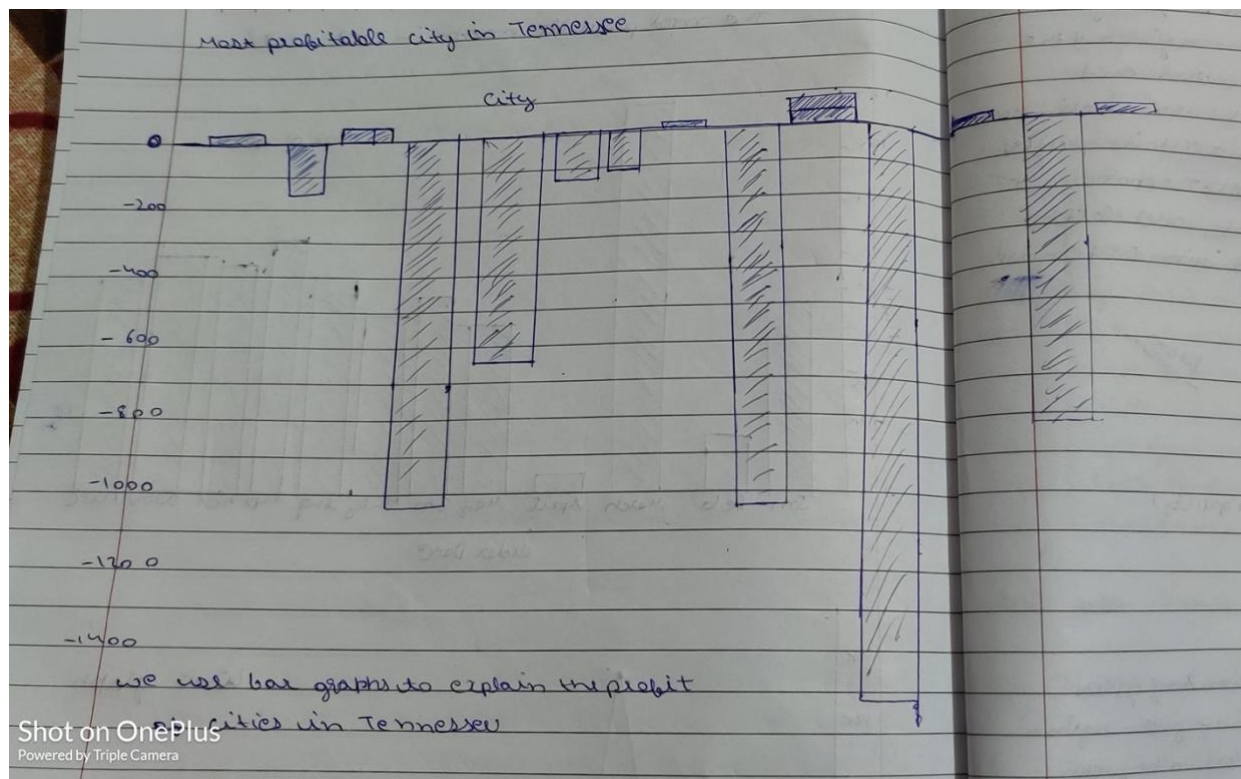 Most profitable city in Tennessee
City
0
-200
-400
-600
-800
-1000
-1200
-1400
we use bar graphs to explain the profit
cities in Tennessee
Shot on OnePlus
Powered by Triple Camera